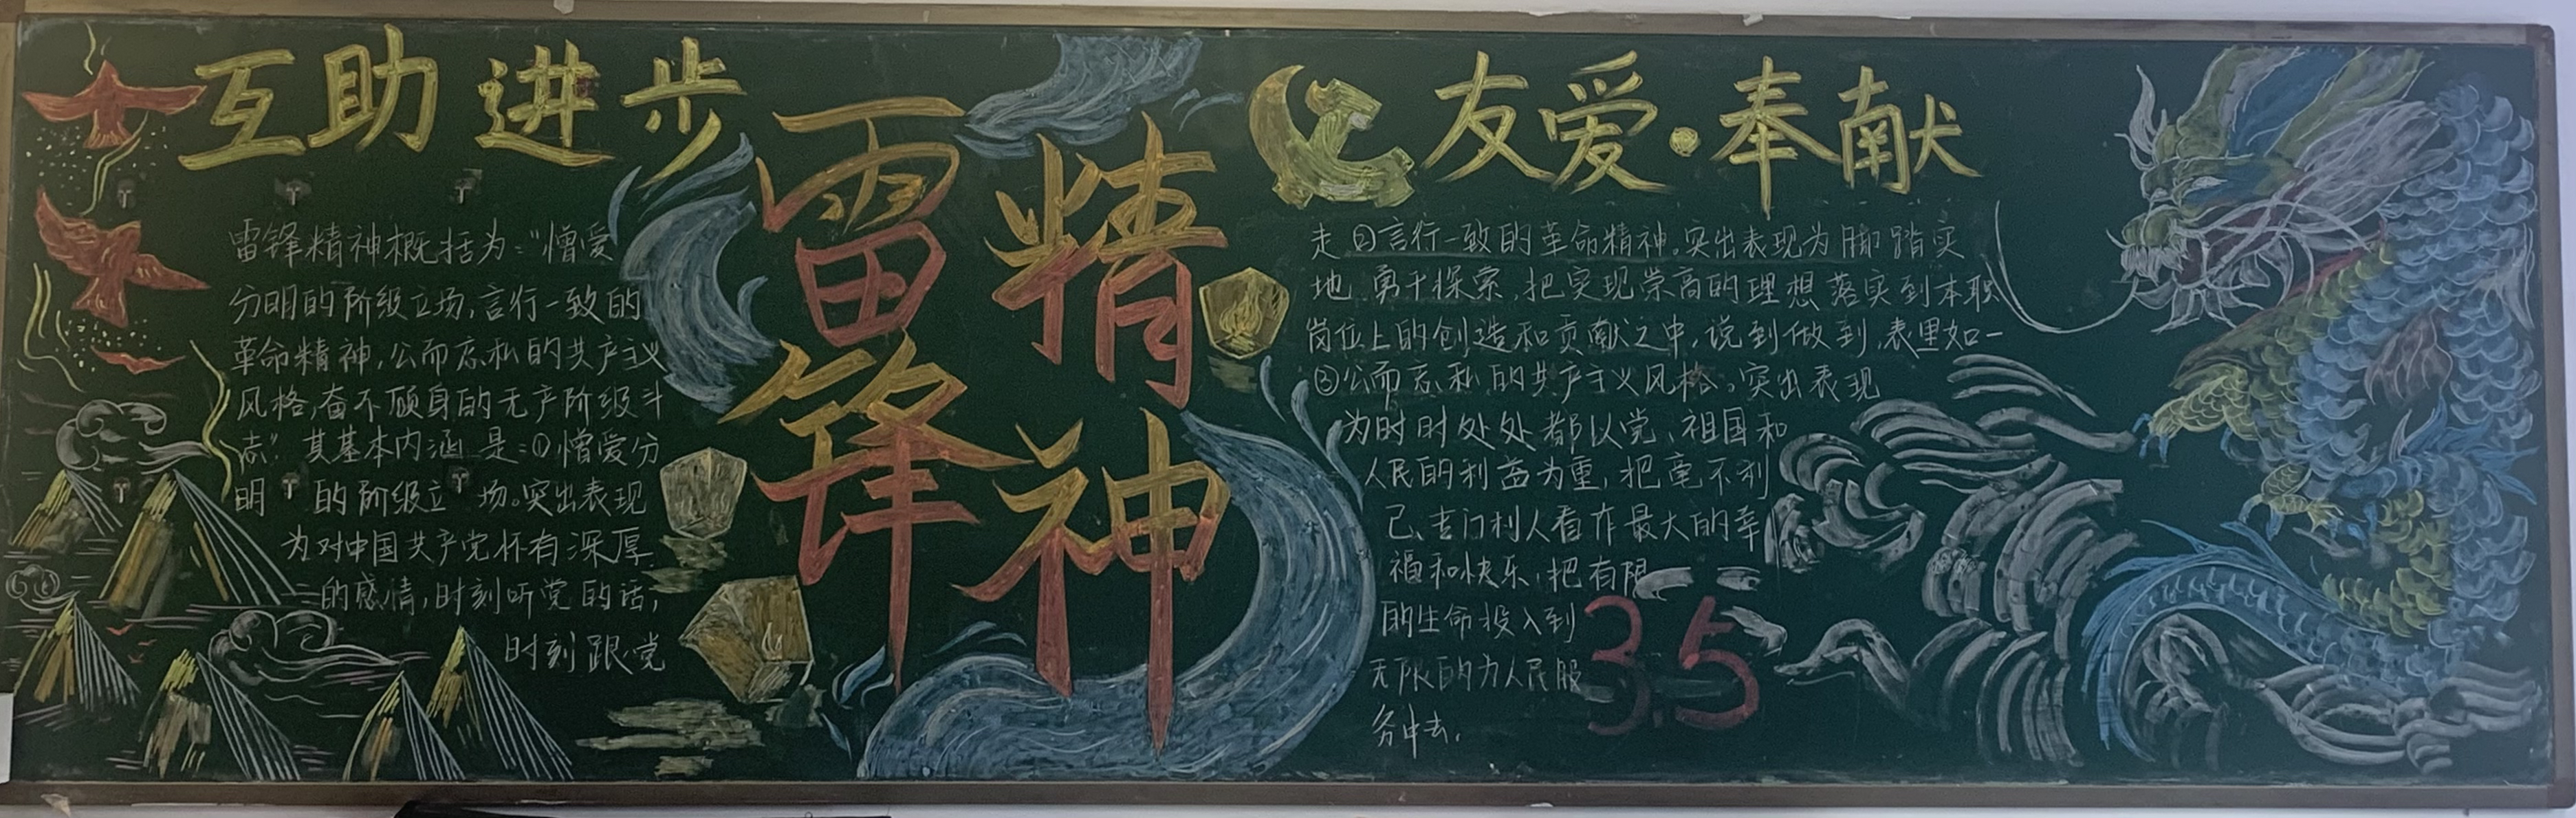 互助进步
雷锋精神概括为:“憎爱
分明的阶级立场,言行一致的
革命精神,公而忘私的共产主义
风格,奋不顾身的无产阶级斗
志”其基本内涵是:①憎爱分
明的阶级立场。突出表现
为对中国共产党怀有深厚
的感情,时刻听党的话,
时刻跟党
雷锋
精神
友爱·奉献
走②言行一致的革命精神。突出表现为脚踏实
地、勇于探索,把实现崇高的理想落实到本职
岗位上的创造和贡献之中,说到做到,表里如一
③公而忘私的共产主义风格。突出表现
为时时处处都以党、祖国和
人民的利益为重,把毫不利
己、专门利人看作最大的幸
福和快乐,把有限
的生命投入到
无限的为人民服
务中去。
3.5